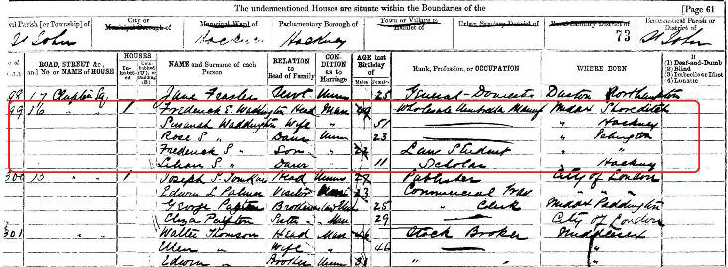 The undermentioned Houses are situate within the Boundaries of the
[Page 61
Civil Parish [or Township] of City or Municipal Borough of Municipal Ward of Parliamentary Borough of Town or Village or District of Urban Sanitary District of Rural Sanitary District of Ecclesiastical Parish or District of
St John Hackney Hackney 73 St John
ROAD, STREET, &c., and No. or NAME of HOUSE HOUSES NAME and Surname of each Person RELATION to Head of Family CONDITION as to Marriage AGE last Birthday of Rank, Profession, or OCCUPATION WHERE BORN If (1) Deaf-and-Dumb (2) Blind (3) Imbecile or Idiot (4) Lunatic
Males Females
98 17 Clapton Sq. Jane Servt Unm 25 General Domestic Northampton
99 16 1 Frederick S. Waddington Head Mar 49 Wholesale Umbrella Manuf Middx Shoreditch
Susannah Waddington Wife " 51 " Hackney
Rose S " Daur Unm 23 " Islington
Frederick S " Son " 22 Law Student " "
Lilian S " Daur 11 Scholar Hackney
300 15 " 1 Joseph S. Head Unm 27 Publisher City of London
Edwin L. Palmer Visitor 23 Commercial Trav " " "
George 25 " Clerk Middx Paddington
Eliza Mar 29 City of London
301 Walter Thomson Head Mar Stock Broker Middlesex
Ellen " Wife " 46 "
Edwin " Brother Unm " " "